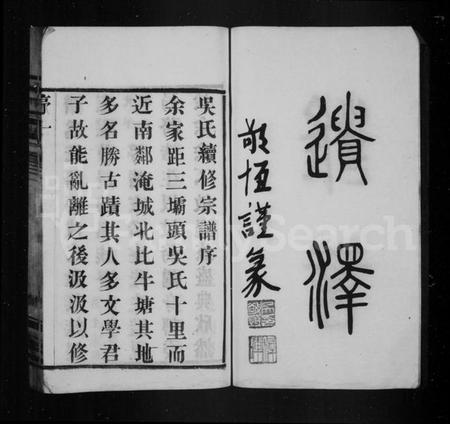 遺澤
敬恆謹篆
吳氏續修宗譜序
余家距三壩頭吳氏十里而
近南鄰淹城北比牛塘其地
多名勝古蹟其人多文學君
子故能亂離之後汲汲以修
序一